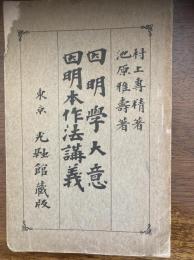 村上專精著
池原雅壽著
因明學大意
因明本作法講義
東京 光融館藏版